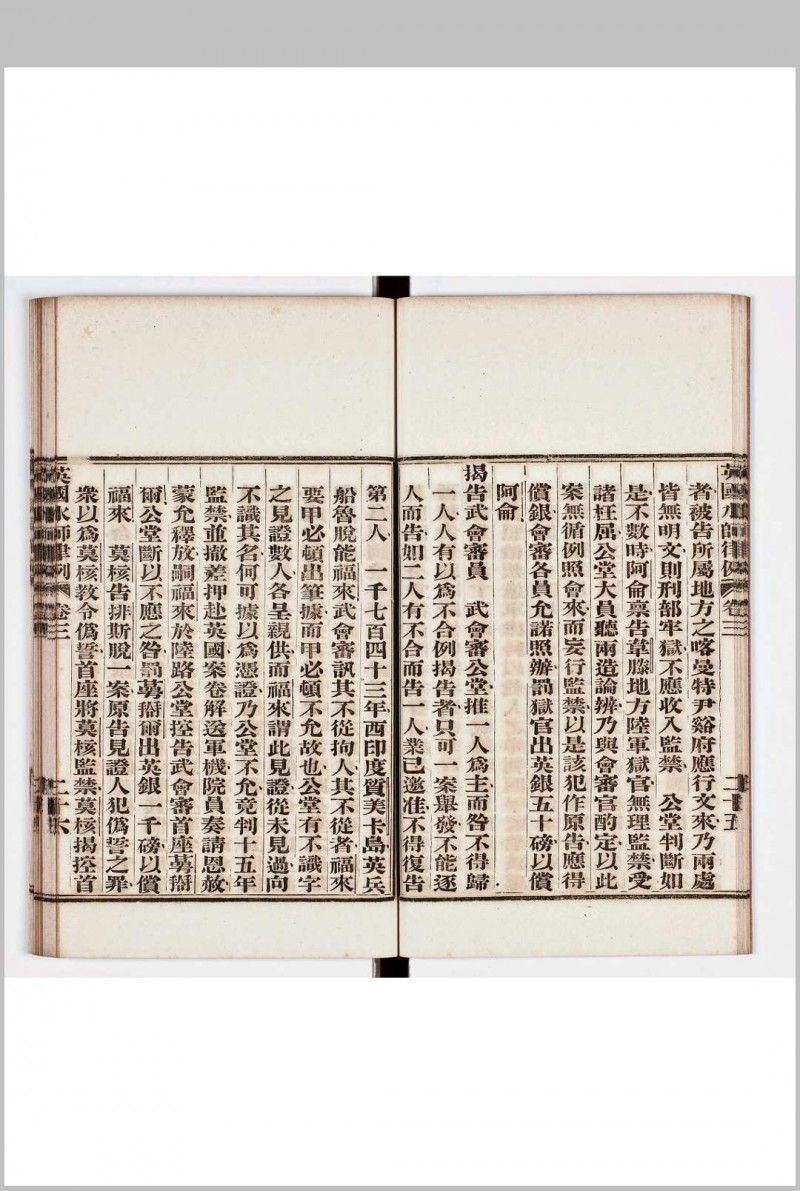 英國水師律例 卷三 二十五
者被告所屬地方之喀曼特尹谿府應行文來乃兩處
皆無明文則刑部牢獄不應收入監禁 公堂判斷如
是不數時阿侖稟告韋縢地方陸軍獄官無理監禁受
諸枉屈公堂大員聽兩造論辨乃與會審官酌定以此
案無循例照會來而妄行監禁以是該犯作原告應得
償銀會審各員允諾照辦罰獄官出英銀五十磅以償
阿侖
揭告武會審員 武會審公堂推一人為主而咎不得歸
一人人有以為不合例揭告者只可一案舉發不能逐
人而告如二人有不合而告一人業已邀准不得復告
第二人 一千七百四十三年西印度質美卡島英兵
船魯脫能福來武會審訊其不從拘人其不從者福來
要甲必頓出筆據而甲必頓不允故也公堂有不識字
之見證數人各呈親供而福來謂此見證從未見過向
不識其名何可據以為憑證乃公堂不允竟判十五年
監禁並撤差押赴英國案卷解送軍機院員奏請恩赦
蒙允釋放嗣福來於陸路公堂控告武會審首座
爾公堂斷以不應之咎罰爾出英銀一千磅以償
福來 莫核告排斯脫一案原告見證人犯僞誓之罪
衆以為莫核教令僞誓首座將莫核監禁莫核揭控首
英國水師律例 卷三 二十六